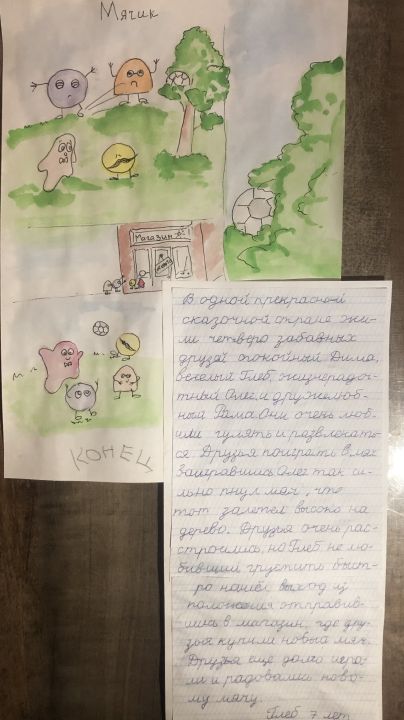 Мячик
Магазин
КОНЕЦ
В одной прекрасной
сказочной стране жи-
ли четверо забавных
друзей спокойный Дима,
веселый Глеб, жизнерадос-
тный Олег, и дружелюб-
ный Рома. Они очень люб-
или гулять и развлекать-
ся. Друзья поиграть в мяч.
Заигравшись Олег так си-
льно пнул мяч, что
тот залетел высоко на
дерево. Друзья очень рас-
строились, но Глеб не лю-
бивший грустить быст-
ро нашёл выход из
положения отправив-
шись в магазин, где дру-
зья купили новый мяч.
Друзья ещё долго игра-
ли и радовались ново-
му мячу.
Глеб 7 лет